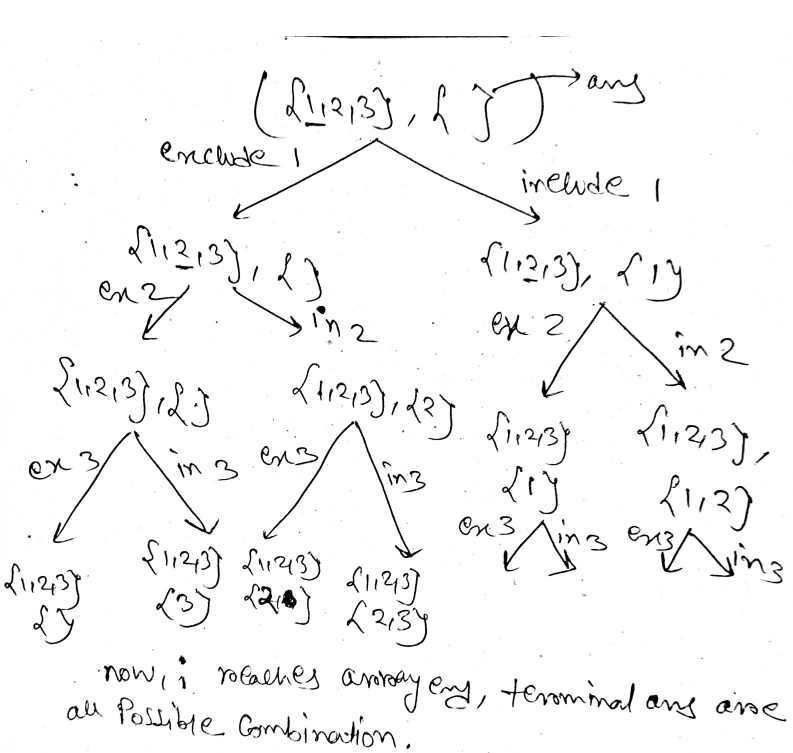 ({1,2,3}, { }) → ans
exclude 1
include 1
{1,2,3}, { }
{1,2,3}, {1}
ex 2
in 2
ex 2
in 2
{1,2,3}, { }
{1,2,3}, {2}
{1,2,3}
{1,2,3},
{1}
{1,2}
ex 3
in 3
ex 3
in 3
ex 3
in 3
ex 3
in 3
{1,2,3}
{1,2,3}
{1,2,3}
{1,2,3}
{ }
{3}
{2, }
{2,3}
now, i reaches array end, terminal ans are
all Possible Combination.